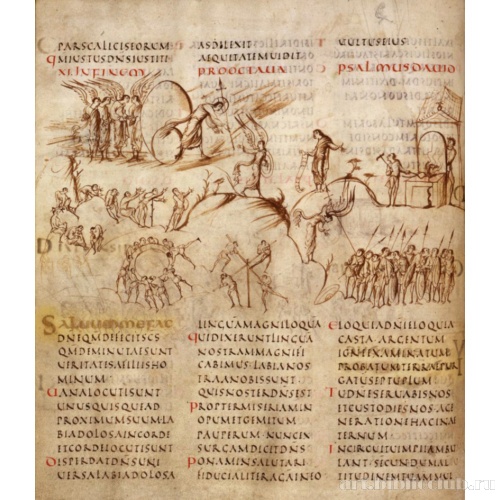 PARSCALICISEORUM
QMIUSTUSDNSIUSTITI
ASDILEXIT
AEQUITATEMUIDIT
UULTUSEIUS
XI INFINEM PROOCTAUA PSALMUSDAUID
SALUUMMEFAC
DNEQMDEFICITSCS
QMDEMINUTAESUNT
UERITATISAFILIISHO
MINUM
UANALOCUTISUNT
UNUSQUISQUEAD
PROXIMUMSUUMLA
BIADOLOSAINCORDE
ETCORDELOCUTISUNT
DISPERDATDNSUNI
UERSALABIADOLOSA
LINGUAMMAGNILOQUA
QUIDIXERUNTLINGUA
NOSTRAMMAGNIFI
CABIMUSLABIANOS
TRAANOBISSUNT
QUISNOSTERDNSEST
PROPTERMISERIAMIN
OPUMETGEMITUM
PAUPERUM NUNC
SURGAMDICITDNS
PONAMINSALUTARI
FIDUCIALITER
ELOQUIADNIELOQUIA
CASTA ARGENTUM
IGNEEXAMINATUM
PROBATUMTERRAEPUR
GATUSEPTUPLUM
TUDNESERUABISNOS
ETCUSTODIESNOS AGE
NERATIONEHACINAE
TERNUM
INCIRCUITUIMPIIAMBU
LANT SECUNDUMAL
TITUDINEMTUAM